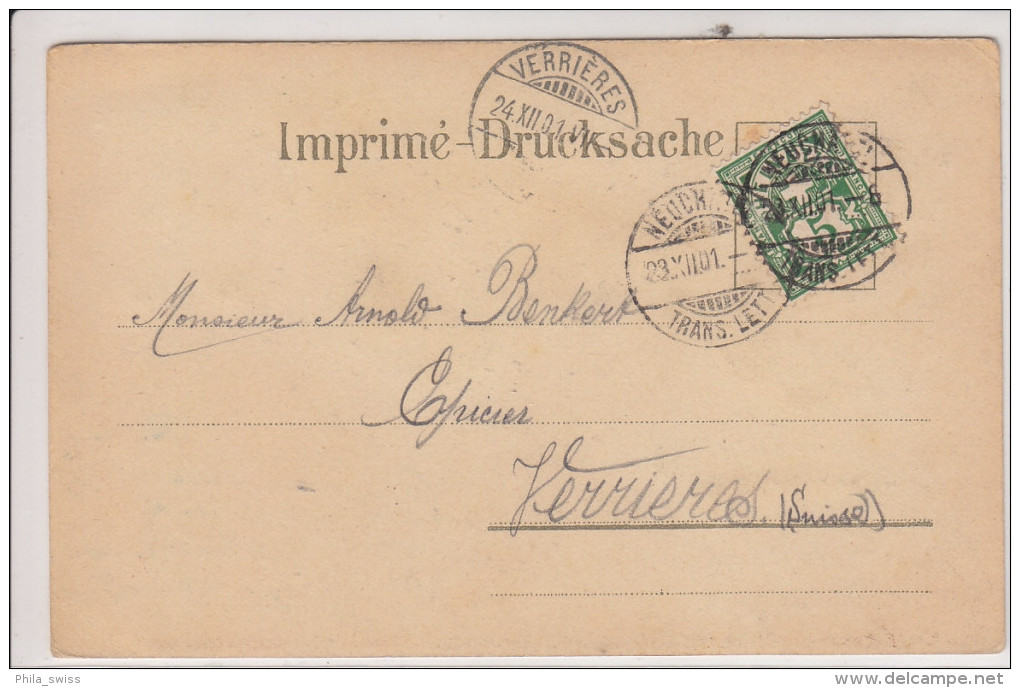 VERRIÈRES
24.XII.01.VII
Imprimé-Drucksache
NEUCH
23.XII.01.
TRANS. LETT
NEUCH
XII.01. 6
TRANS. LET
5
Monsieur Arnold Benkert
Epicier
Verrieres. (Suisse)
Phila_swiss
www.delcampe.net